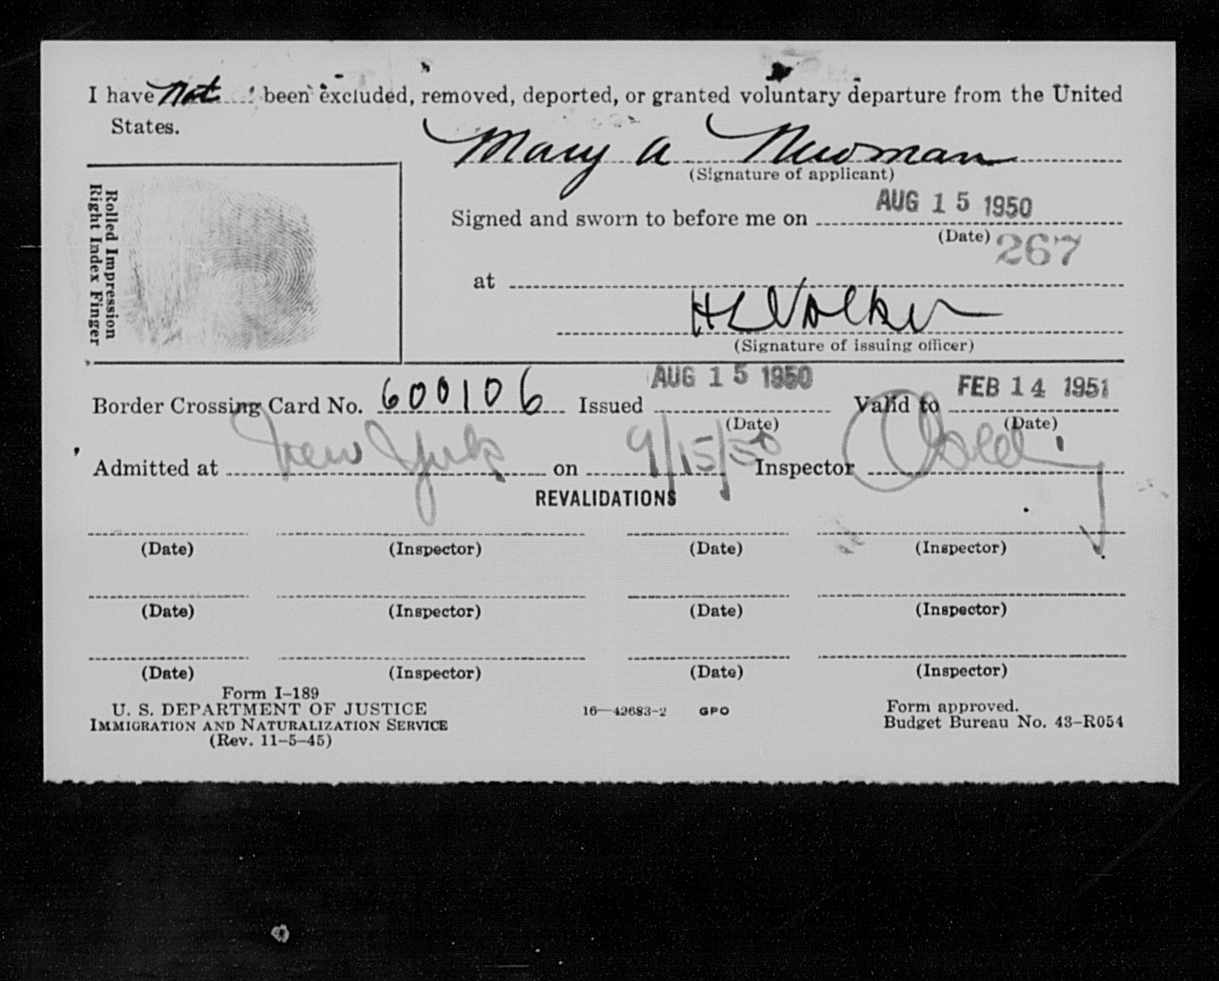 I have not been excluded, removed, deported, or granted voluntary departure from the United
States.
Mary A Newman
(Signature of applicant)
Rolled Impression
Right Index Finger
Signed and sworn to before me on AUG 15 1950
(Date)
267
at
H L Volker
(Signature of issuing officer)
Border Crossing Card No. 600106 Issued AUG 15 1950 Valid to FEB 14 1951
(Date) (Date)
Admitted at New York on 9/15/50 Inspector
REVALIDATIONS
(Date) (Inspector) (Date) (Inspector)
(Date) (Inspector) (Date) (Inspector)
(Date) (Inspector) (Date) (Inspector)
Form I-189
U. S. DEPARTMENT OF JUSTICE
IMMIGRATION AND NATURALIZATION SERVICE
(Rev. 11-5-45)
16—42683-2 GPO
Form approved.
Budget Bureau No. 43-R054